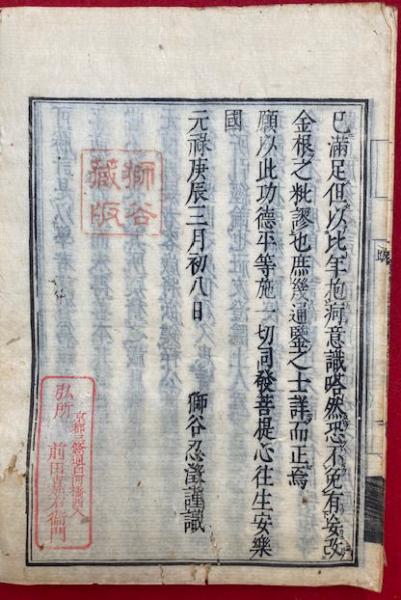 已滿足但以比年抱病意識嗒然恐不免有妄改
金根之紕謬也庶幾通鑒之士詳而正焉
願以此功德平等施一切同發菩提心往生安樂
國
元祿庚辰三月初八日　獅谷忍澂謹識
獅谷
藏版
京都三條通白河橋西入
弘所　前田嘉右衛門